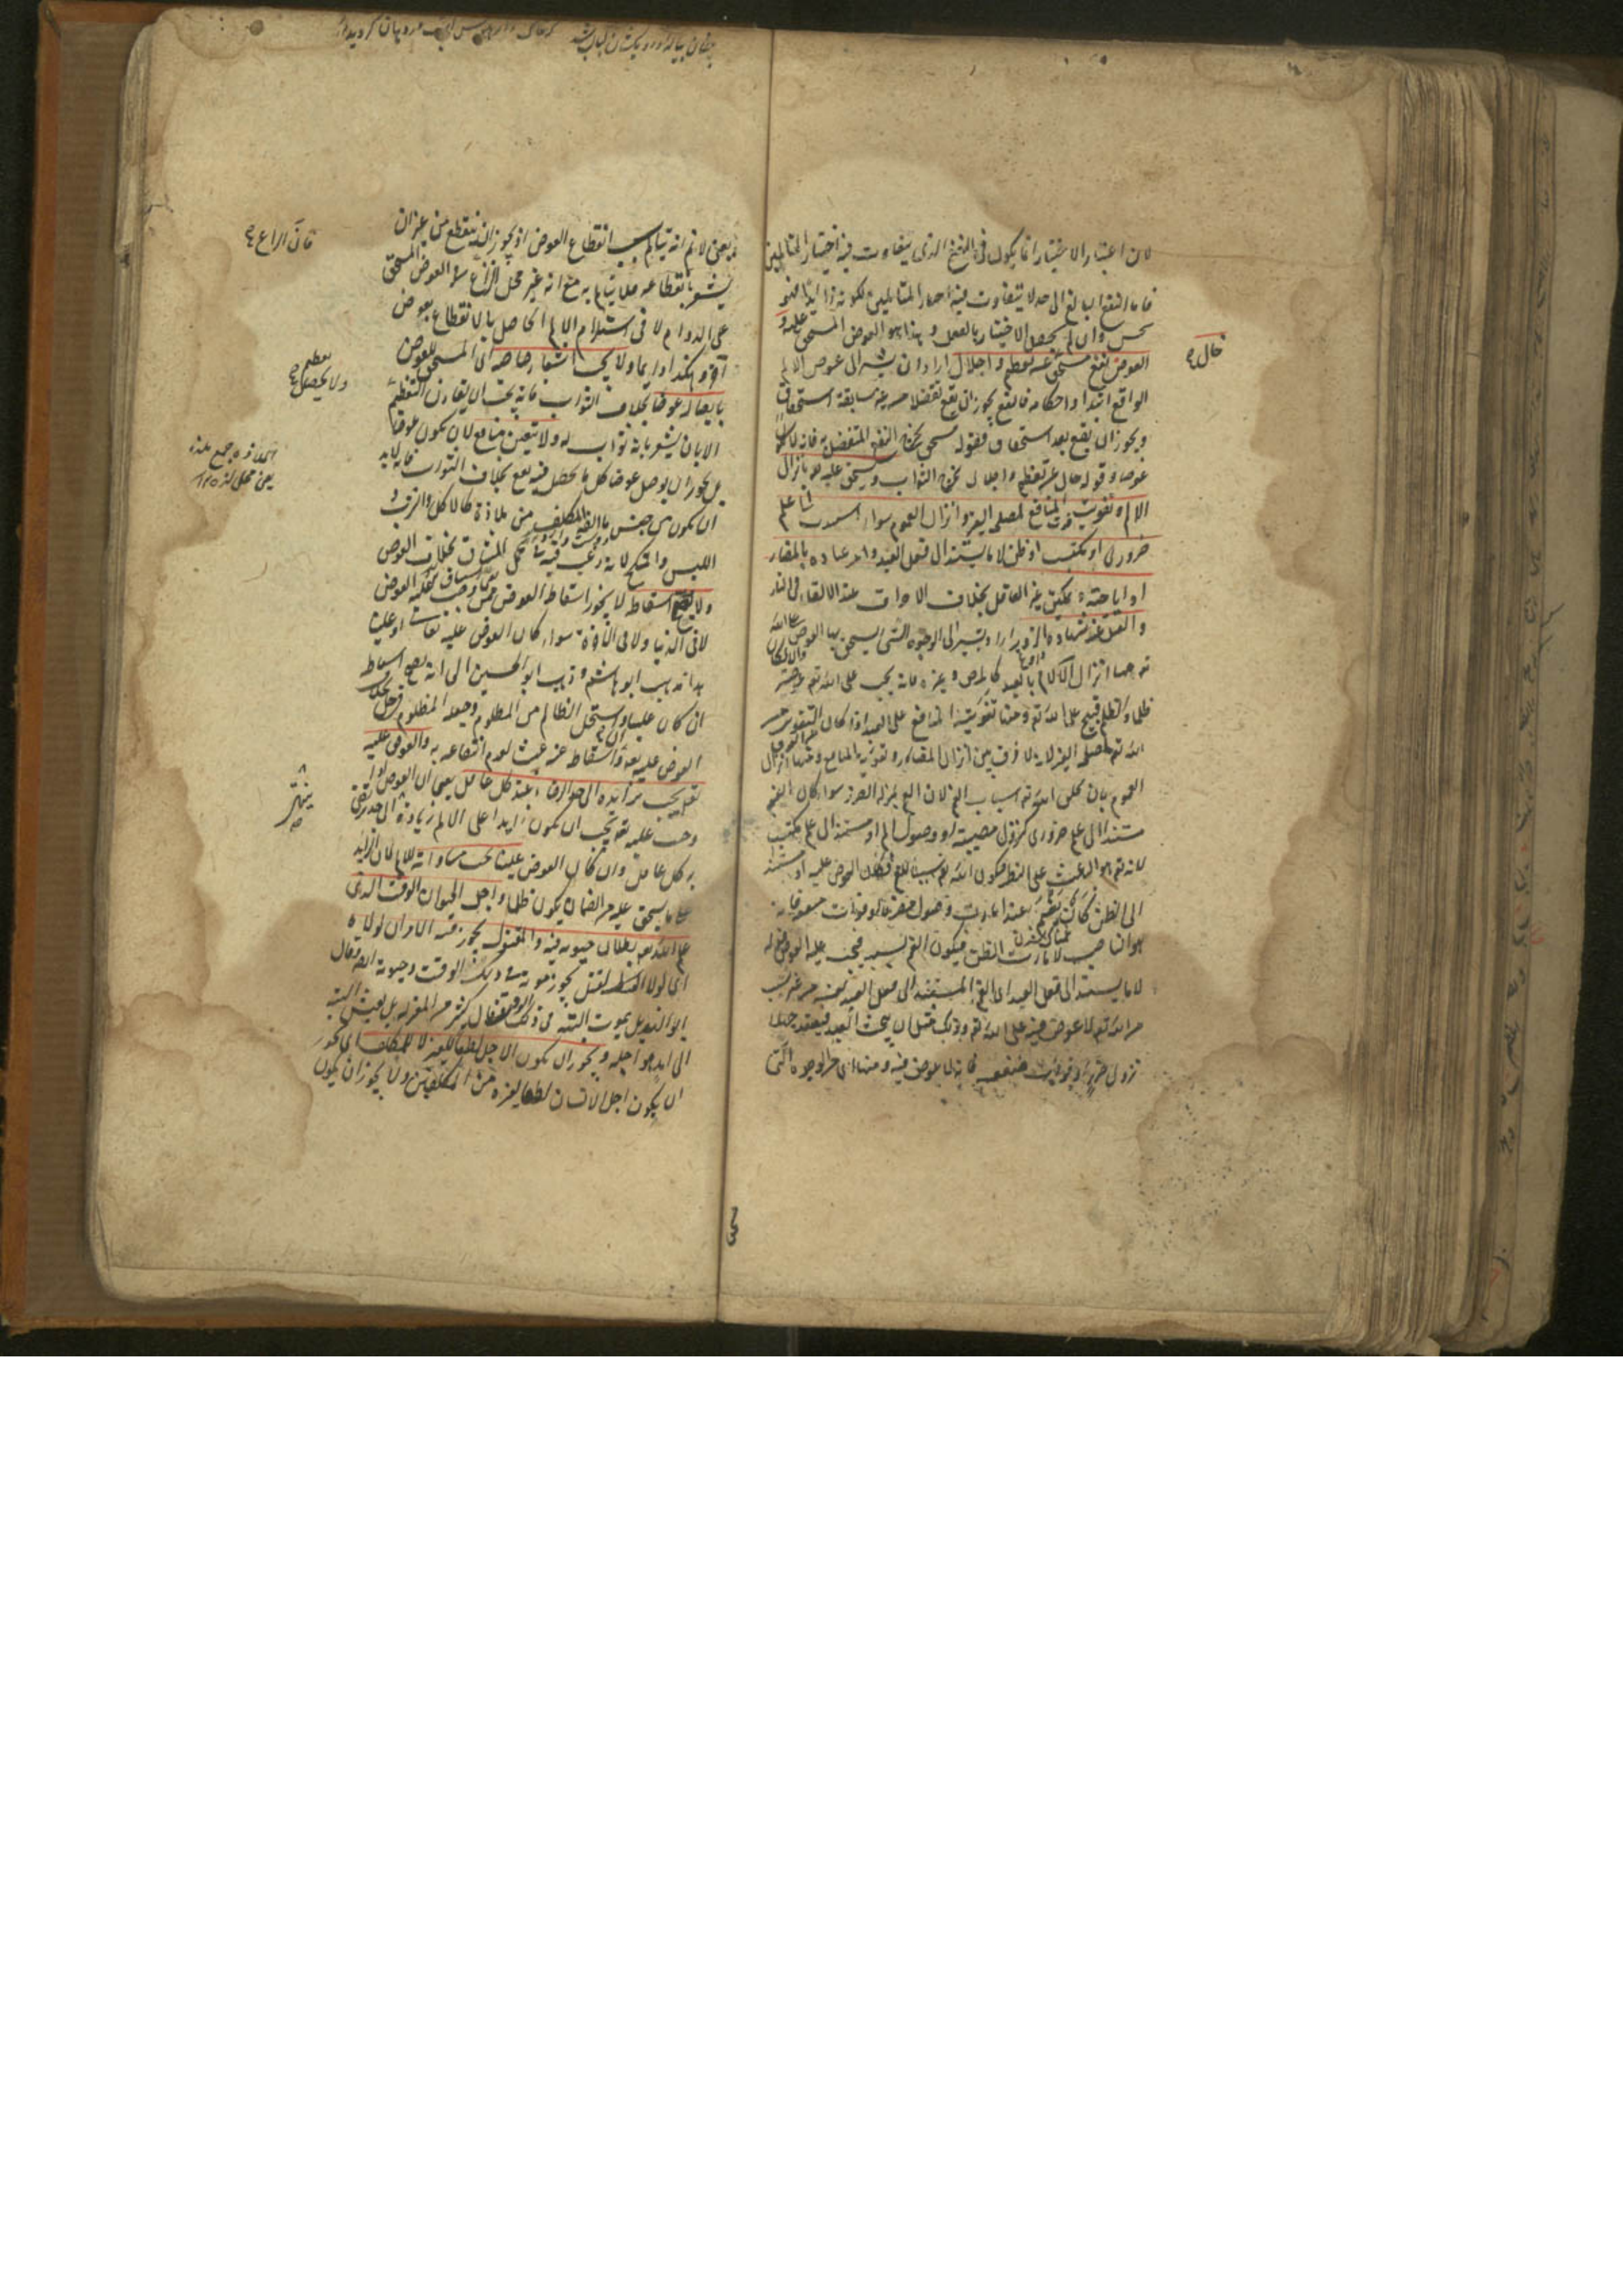 لان اعتبار الاختيار انما يكون في النفع الذي يتفاوت فيه اختيار المتألمين
فاما النفع البالغ الى حد لا يتفاوت فيه اختيار المتألمين لكونه زايدا فهو
حسن وان لم يحصل الاختيار بالفعل وهذا هو العوض المستحق عليه و
العوض نفع مستحق خال عن تعظيم واجلال اراد ان يشير الى عوض الالم
الواقع ابتدا واحكامه فالنفع يجوز ان يقع تفضلا من غير سابقة استحقاق
ويجوز ان يقع بعد استحقاق فقوله مستحق يخرج النفع المتفضل به فانه لا يكون
عوضا وقوله خال عن تعظيم واجلال يخرج الثواب ويستحق عليه تع بانزال
الالام وتفويت المنافع لمصلحة الغير وانزال الغموم سواء استندت الى علم
ضروري او مكتسب او ظن لا ما يستند الى فعل العبد وامر عباده بالمضار
او اباحته و تمكين غير العاقل بخلاف الاحراق عند الالقاء في النار
والقتل عند شهادة الزور اراد ان يشير الى الوجوه التي يستحق بها العوض على الله
تع منها انزال الآلام بالعبد كالمرض وغيره فانه يجب على الله تع عوضه
ظلما والظلم قبيح على الله تع ومنها تفويته المنافع على العبد اذا كان التفويت من
الله تع لمصلحة الغير لانه لا فرق بين انزال المضار وتفويت المنافع ومنها انزال
الغموم بان يخلق الله تع اسباب الغم لان الغم بمنزلة الضرر سواء كان الغم
مستندا الى علم ضروري كنزول مصيبة او وصول الم او مستندا الى علم مكتسب
لانه تع هو الباعث على النظر فيكون الله تع سببا للغم فكان العوض عليه او مستندا
الى الظن كأن يغتم عند امارت وصول مضرة او فوات منفعة فانه
هو الناصب لامارت الظن فيكون الغم بسببه فيجب عليه العوض قوله
لا ما يستند الى فعل العبد اى الغم المستند الى فعل العبد نفسه من غير سبب
من الله تع لا عوض فيه على الله تع وذلك مثل ان يبحث العبد فيعتقد جهلا
نزول ضرر او فوات منفعة فانه لا عوض فيه ومنها اى من الوجوه التي
خال ع
يعنى لا نم انه يتألم بسبب انقطاع العوض اذ يجوز ان ينقطع من غير ان
يشعر بانقطاعه فلا يتألم به مع انه غير محل النزاع هو العوض المستحق
على الدوام لا فى استلزام الالم الحاصل بالانقطاع بعوض
آخر وهكذا دايما ولا يجب اشعار صاحبه اى المستحق للعوض
بايصاله عوضا بخلاف الثواب فانه يجب ان يقارن التعظيم
الا بان يشعر بانه ثواب له ولا يتعين منافع لان يكون عوضا
بل يجوز ان يوصل عوضا كل ما يحصل فيه نفع بخلاف الثواب فانه لابد
ان يكون من جنس ما الفه المكلف من ملاذه كالاكل والشرب و
اللبس والنكاح لانه رغب فيه بتحمل المشاق بخلاف العوض
ولا يصح اسقاطه لا يجوز اسقاط العوض ممن وجب عليه العوض
لا فى الدنيا ولا فى الآخرة سواء كان العوض عليه تعالى او علينا
هذا مذهب ابو هاشم وذهب ابو الحسين الى انه يصح اسقاط
ان كان علينا واستحل الظالم من المظلوم وجعله المظلوم فى حل بخلاف
العوض عليه تع فان اسقاطه عنه عبث لعدم انتفاعه به والعوض عليه
تع يجب تزايده الى حد الرضاء عند كل عاقل يعنى ان العوض اذا
وجب عليه تع يجب ان يكون زايدا على الالم زيادة الى حد يرضى
به كل عاقل وان كان العوض علينا يجب مساواته للالم لان الزايد
على ما يستحق عليه من الضمان يكون ظلما واجل الحيوان الوقت الذى
علم الله تع بطلان حيوته فيه والمقتول يجوز فيه الامران لولاه
اى لولا القتل يجوز موته فى ذلك الوقت وحيوته الآخر وقال
ابو الهذيل يموت البتة فى ذلك الوقت وقال كثير من المعتزلة بل يعيش البتة
الى امد هو اجله ويجوز ان يكون الاجل لطفا للغير لا للمكلف اى يجوز
ان يكون اجل الانسان لطفا لغيره من المكلفين ولا يجوز ان يكون